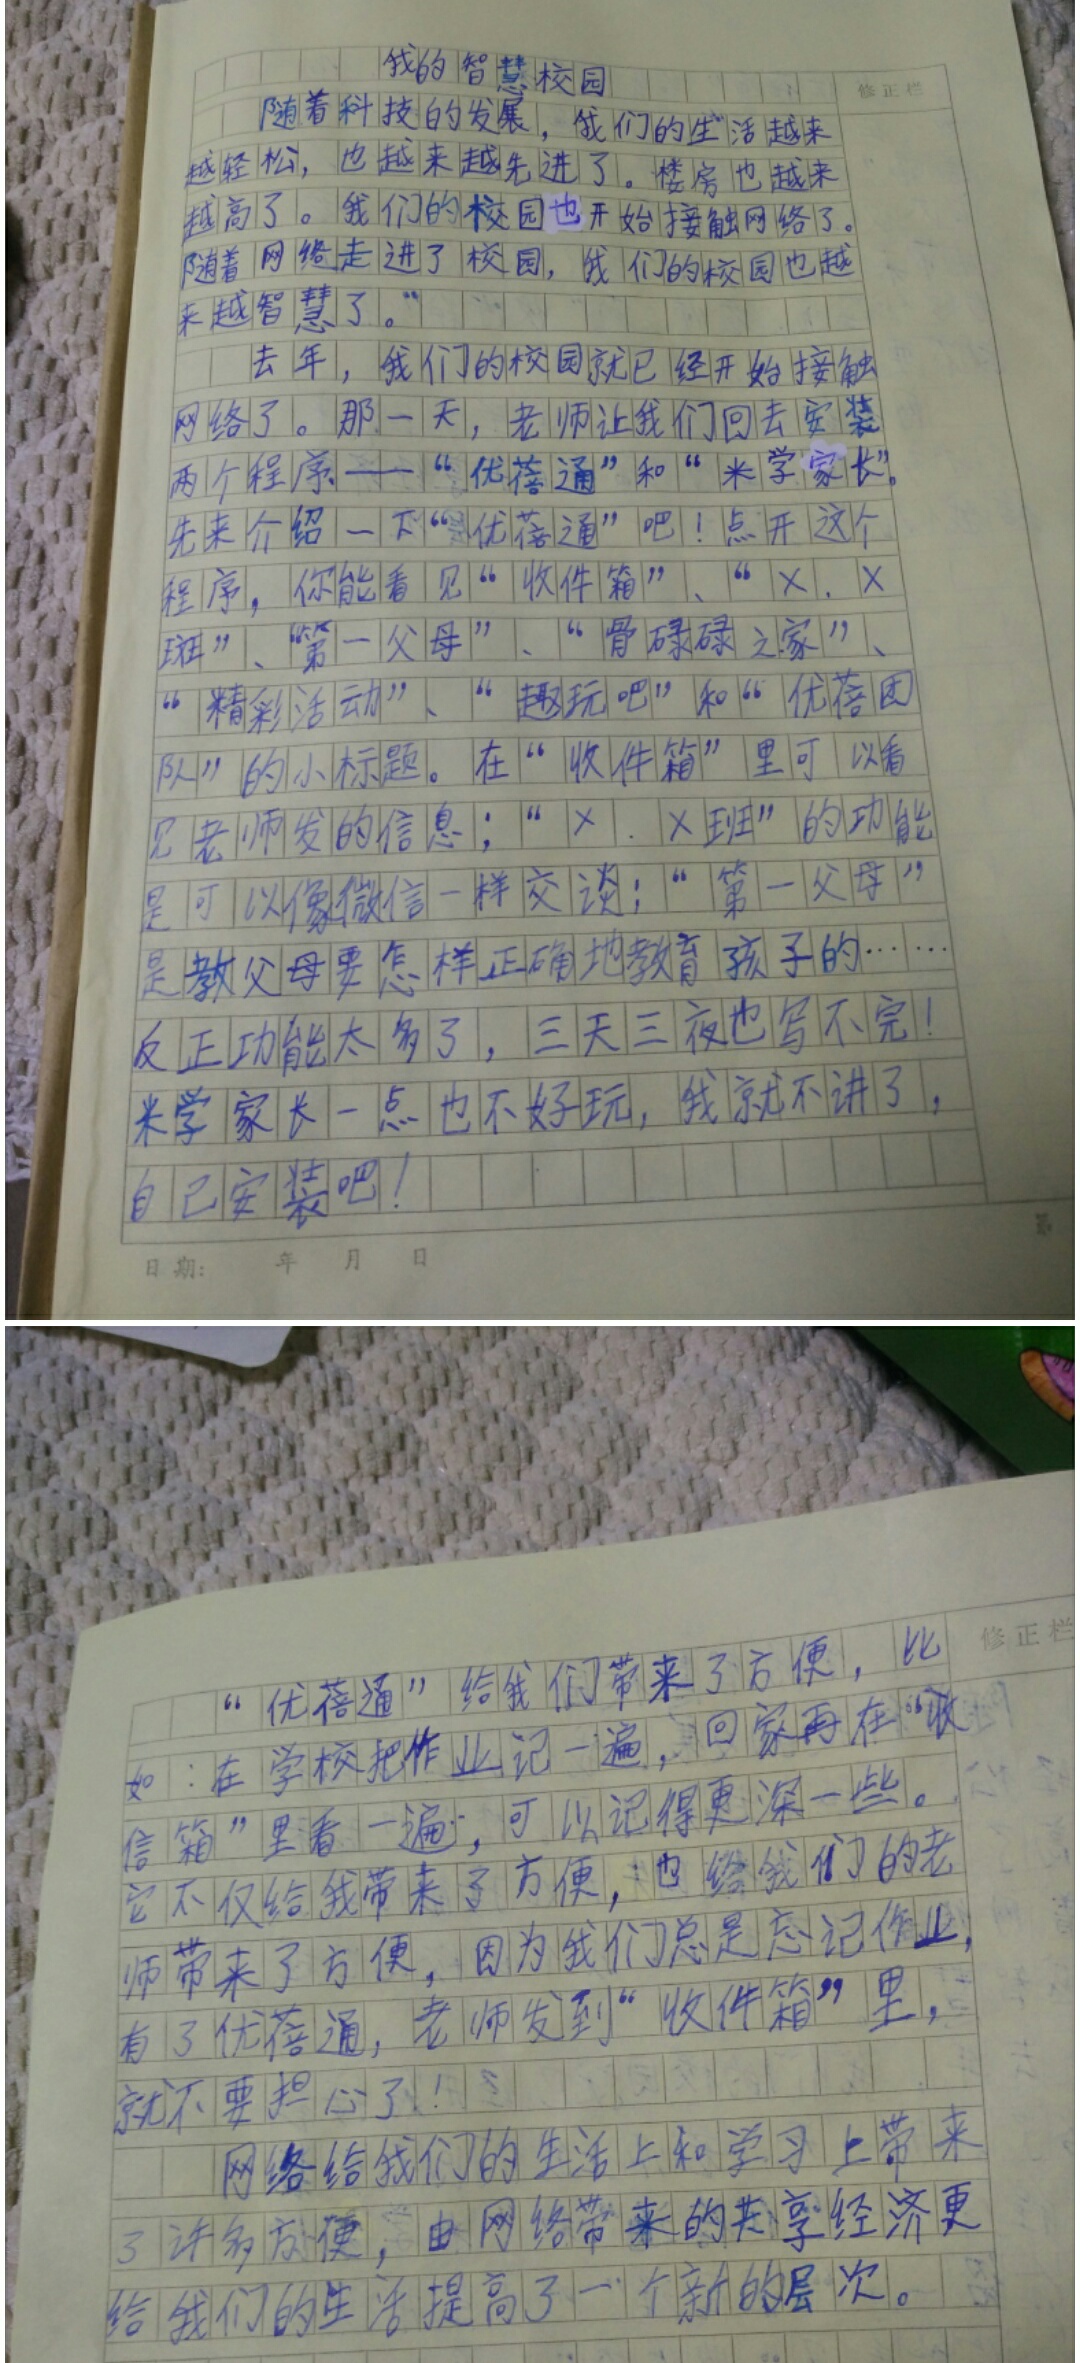 我的智慧校园
修正栏
随着科技的发展，我们的生活越来
越轻松，也越来越先进了。楼房也越来
越高了。我们的校园也开始接触网络了。
随着网络走进了校园，我们的校园也越
来越智慧了。"
去年，我们的校园就已经开始接触
网络了。那一天，老师让我们回去安装
两个程序——“优蓓通”和“米学家长”。
先来介绍一下“优蓓通”吧！点开这个
程序，你能看见“收件箱”、“X.X
班”、“第一父母”、“骨碌碌之家”、
“精彩活动”、“趣玩吧”和“优蓓团
队”的小标题。在“收件箱”里可以看
见老师发的信息；“X.X班”的功能
是可以像微信一样交谈；“第一父母”
是教父母要怎样正确地教育孩子的……
反正功能太多了，三天三夜也写不完！
米学家长一点也不好玩，我就不讲了，
自己安装吧！
日期： 年 月 日
第
修正栏
“优蓓通”给我们带来了方便，比
如：在学校把作业记一遍，回家再在“收
信箱”里看一遍，可以记得更深一些。
它不仅给我带来了方便，也给我们的老
师带来了方便，因为我们总是忘记作业，
有了优蓓通，老师发到“收件箱”里，
就不要担心了！
网络给我们的生活上和学习上带来
了许多方便，由网络带来的共享经济更
给我们的生活提高了一个新的层次。